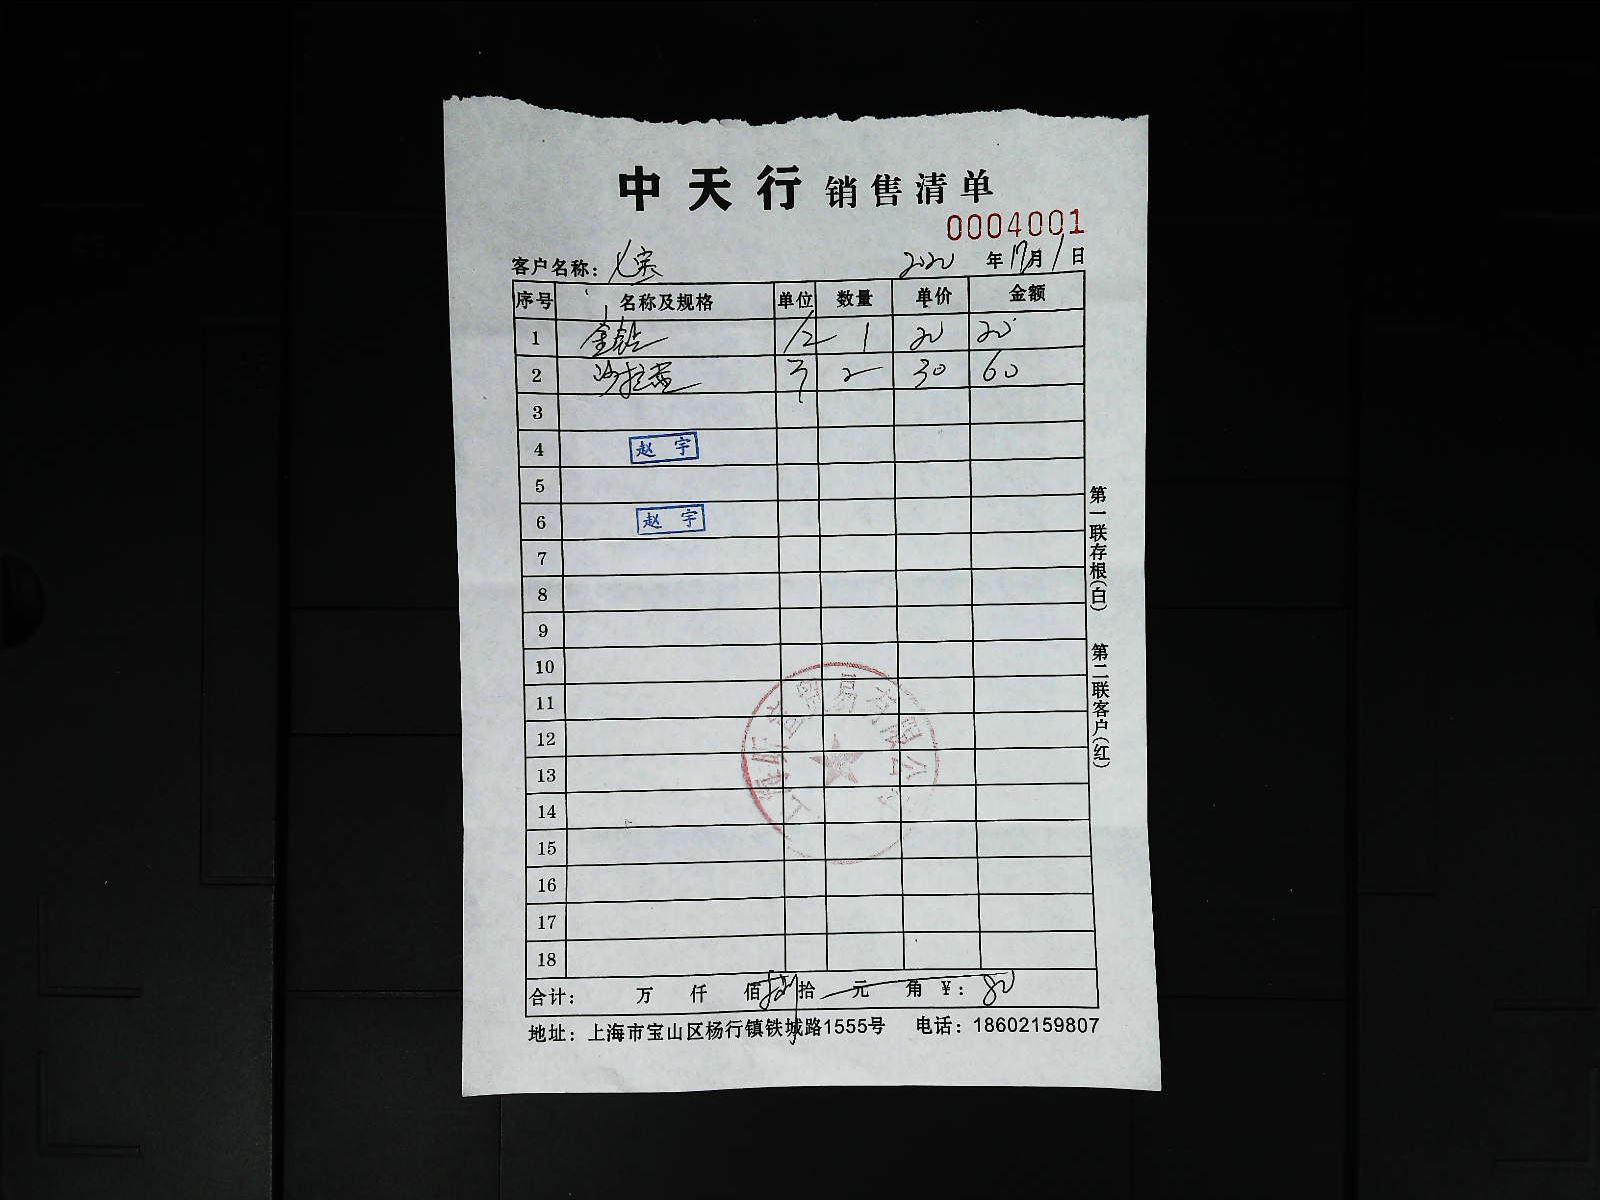 中天行 销售清单
0004001
客户名称： 七宝 2020 年 12 月 1 日
序号 名称及规格 单位 数量 单价 金额
1 1 20 20
2 沙拉酱 2 30 60
3
4 赵 宇
5
6 赵 宇
7
8
9
10
11
12
13
14
15
16
17
18
合计： 万 仟 佰 捌 拾 元 角 ¥： 80
地址：上海市宝山区杨行镇铁城路1555号 电话：18602159807
第一联存根(白) 第二联客户(红)
贸易有限公司